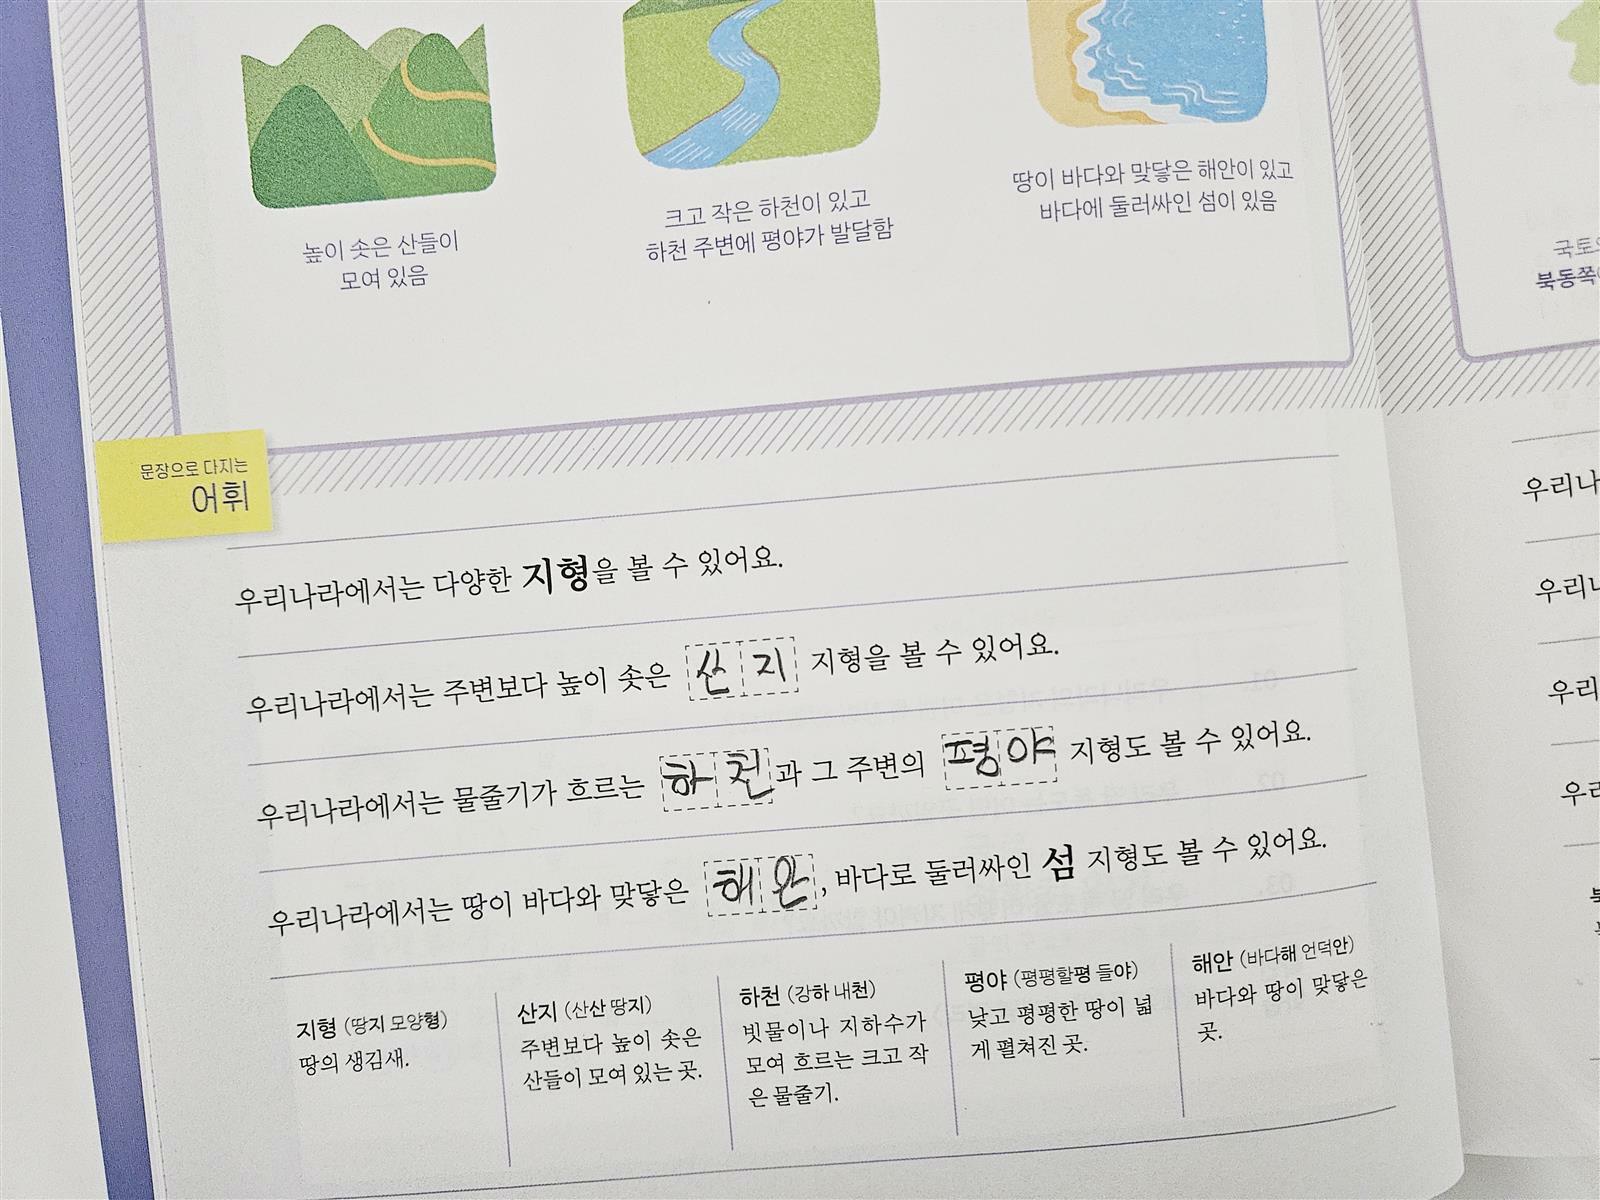 높이 솟은 산들이
모여 있음
크고 작은 하천이 있고
하천 주변에 평야가 발달함
땅이 바다와 맞닿은 해안이 있고
바다에 둘러싸인 섬이 있음
국토의
북동쪽에
문장으로 다지는
어휘
우리나라에서는 다양한 지형을 볼 수 있어요.
우리나라에서는 주변보다 높이 솟은 산지 지형을 볼 수 있어요.
우리나라에서는 물줄기가 흐르는 하천과 그 주변의 평야 지형도 볼 수 있어요.
우리나라에서는 땅이 바다와 맞닿은 해안, 바다로 둘러싸인 섬 지형도 볼 수 있어요.
지형 (땅지 모양형)
땅의 생김새.
산지 (산산 땅지)
주변보다 높이 솟은
산들이 모여 있는 곳.
하천 (강하 내천)
빗물이나 지하수가
모여 흐르는 크고 작
은 물줄기.
평야 (평평할평 들야)
낮고 평평한 땅이 넓
게 펼쳐진 곳.
해안 (바다해 언덕안)
바다와 땅이 맞닿은
곳.
우리나
우리
우리
우리